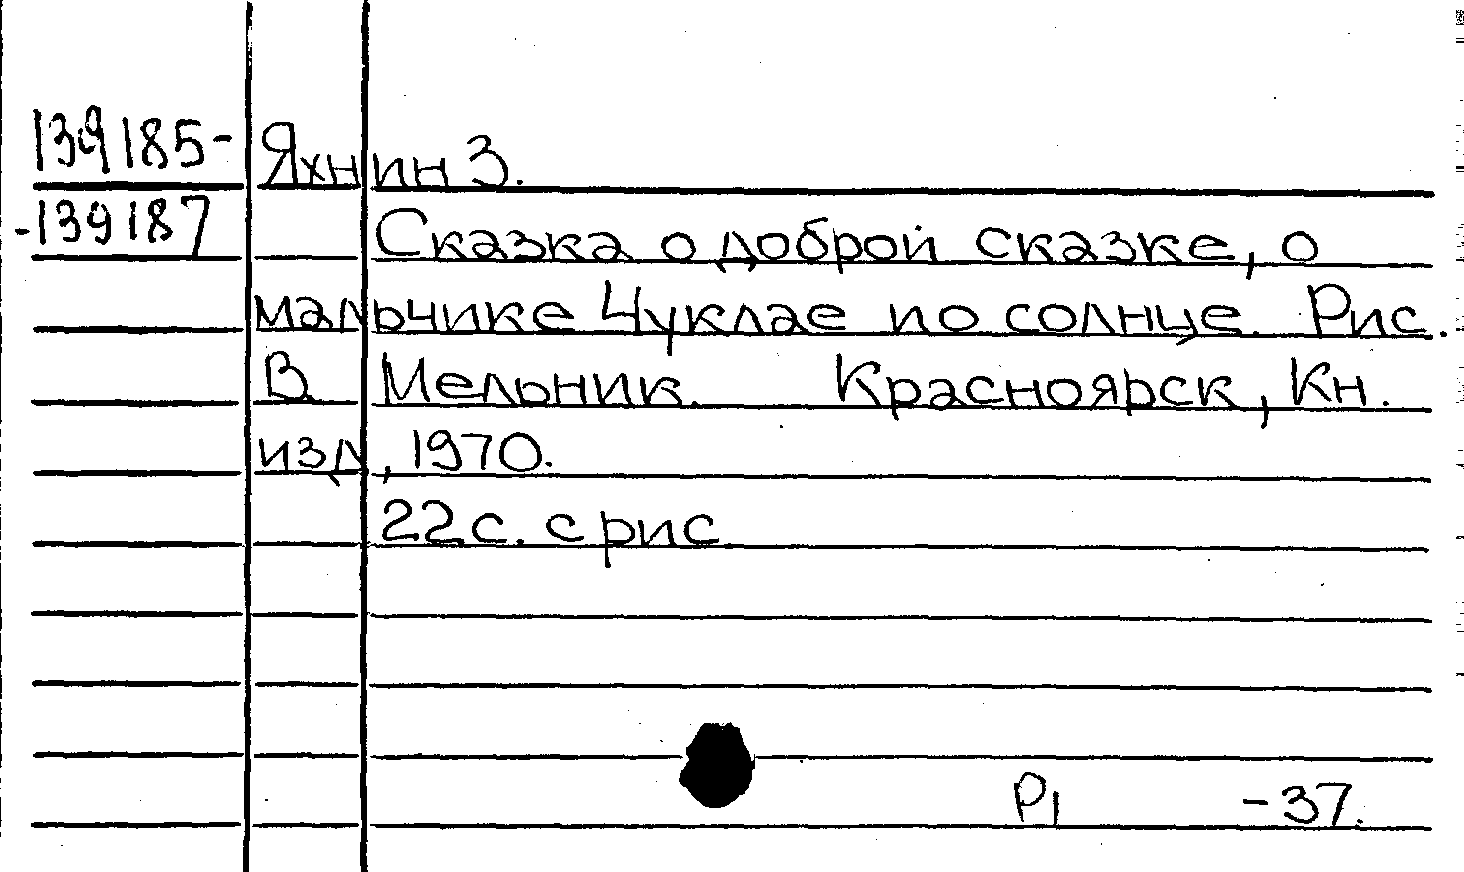 139185- Яхнин З.
-139187 Сказка о доброй сказке, о
мальчике Чуклае по солнце. Рис.
В. Мельник. Красноярск, Кн.
изд, 1970.
22с. с рис
Р1 -37.